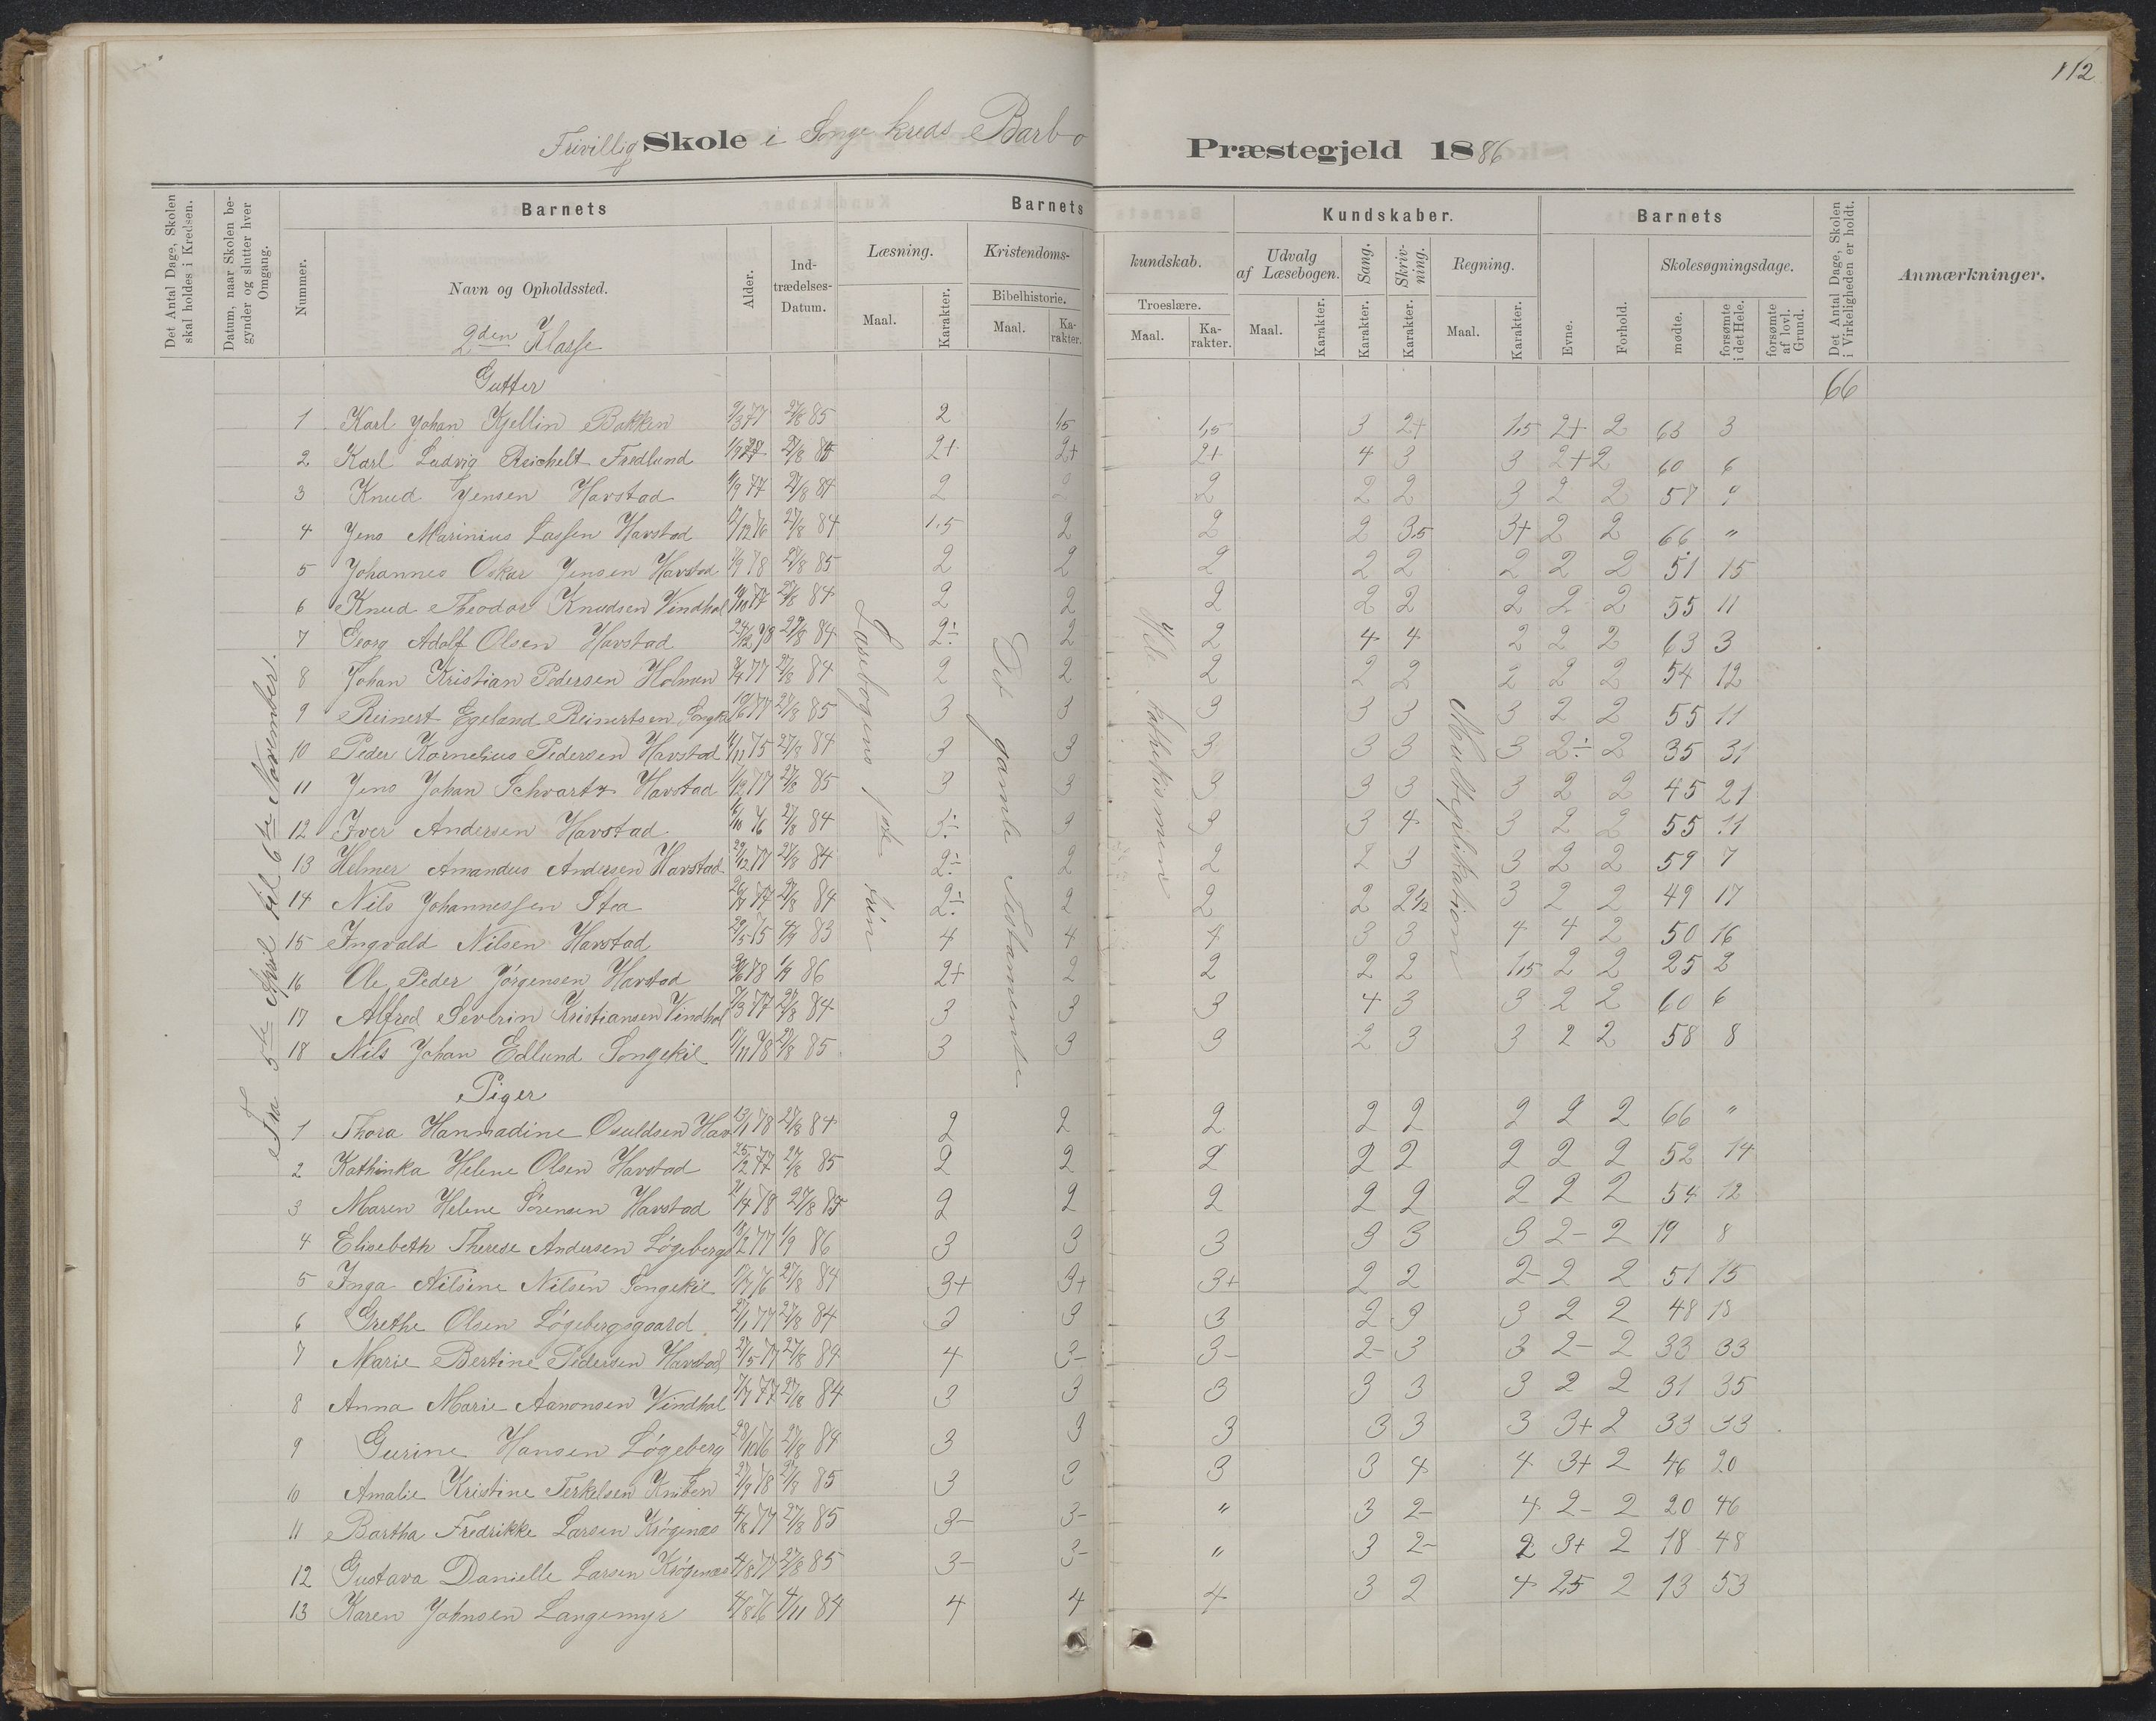 112
Frivillig Skole i Songe kreds Barbo Præstegjeld 1886
Det Antal Dage, Skolen skal holdes i Kredsen.
Datum, naar Skolen begynder og slutter hver Omgang.
Barnets
Nummer.
Navn og Opholdssted.
Alder.
Indtrædelses-Datum.
Barnets Kundskaber.
Læsning.
Maal.
Karakter.
Kristendomskundskab.
Bibelhistorie.
Maal.
Karakter.
Troeslære.
Maal.
Karakter.
Udvalg af Læsebogen.
Maal.
Karakter.
Sang.
Karakter.
Skrivning.
Karakter.
Regning.
Maal.
Karakter.
Barnets
Evne.
Forhold.
Skolesøgningsdage.
mødte.
forsømte i det Hele.
forsømte af lovl. Grund.
Det Antal Dage, Skolen i Virkeligheden er holdt.
Anmærkninger.
2den Klasse
Gutter 66
Fra 5te April til 6te November.
Læsebogens 1ste trin
Det gamle Testamente
Hele kathekismen
Multiplikation
1 Karl Johan Kjellin Bakken 9/3 77 27/8 85 2 1,5 1,5 3 2+ 1,5 2+ 2 63 3
2 Karl Ludvig Reichelt Fredlund 27/8 85 2+ 2+ 2+ 4 3 3 2+ 2 60 6
3 Knud Jensen Havstad 6/9 77 27/8 84 2 2 2 2 2 3 2 2 57 9
4 Jens Marinius Lassen Havstad 12/12 76 27/8 84 1,5 2 2 2 3,5 3+ 2 2 66 "
5 Johannes Oskar Jensen Havstad 27/8 85 2 2 2 2 2 2 2 2 51 15
6 Knud Theodor Knudsen Vindhol 27/8 84 2 2 2 2 2 2 2 2 55 11
7 Georg Adolf Olsen Havstad 24/12 78 27/8 84 2÷ 2 2 4 4 2 2 2 63 3
8 Johan Kristian Pedersen Holmen 8/4 77 27/8 84 2 2 2 2 2 2 2 2 54 12
9 Reinert Egeland Reinertsen Songekil 10/6 77 27/8 85 3 3 3 3 3 3 2 2 55 11
10 Peder Kornelius Pedersen Havstad 27/8 84 3 3 3 3 3 3 2÷ 2 35 31
11 Jens Johan Schvartz Havstad 27/8 85 3 3 3 3 3 3 2 2 45 21
12 Iver Andersen Havstad 6/10 76 27/8 84 3÷ 3 3 3 4 3 2 2 55 11
13 Helmer Amandus Andersen Havstad 29/12 77 27/8 84 2÷ 2 2 2 3 3 2 2 59 7
14 Nils Johannessen Stea 27/8 84 2÷ 2 2 2 2 1/2 3 2 2 49 17
15 Ingvald Nilsen Havstad 29/5 75 83 4 4 4 3 3 4 4 2 50 16
16 Ole Peder Jørgensen Havstad 1/9 86 2+ 2 2 2 2 1,5 2 2 25 2
17 Alfred Severin Kristiansen Vindhol 7/3 77 27/8 84 3 3 3 4 3 3 2 2 60 6
18 Nils Johan Edlund Songekil 27/8 85 3 3 3 2 3 3 2 2 58 8
Piger
1 Thora Hanmadine Osuldsen Hav 23/1 78 27/8 84 2 2 2 2 2 2 2 2 66 "
2 Kathinka Helene Olsen Havstad 25/12 77 27/8 85 2 2 2 2 2 2 2 2 52 14
3 Maren Helene Sørensen Havstad 21/4 78 27/8 85 2 2 2 2 2 2 2 2 54 12
4 Elisebeth Therese Andersen Løgeberg 18/2 77 1/9 86 3 3 3 3 3 3 2- 2 19 8
5 Inga Nilsine Nilsen Songekil 27/8 84 3+ 3+ 3+ 2 2 2- 2 2 51 15
6 Grethe Olsen Løgebergsgaard 27/1 77 27/8 84 3 3 3 2 3 3 2 2 48 18
7 Marie Bertine Pedersen Havstad 27/5 77 27/8 84 4 3- 3- 2- 3 3 2- 2 33 33
8 Anna Marie Aanonsen Vindhol 27/8 84 3 3 3 3 3 3 2 2 31 35
9 Gurine Hansen Løgeberg 28/10 76 27/8 84 3 3 3 3 3 3 3+ 2 33 33
10 Amalie Kristine Terkelsen Kniben 27/9 78 27/8 85 3 3 3 3 4 4 3+ 2 46 20
11 Bartha Fredrikke Larsen Krøgenæs 4/8 77 27/8 85 3- 3- " 3 2- 4 2- 2 20 46
12 Gustava Danielle Larsen Krøgenæs 4/8 77 27/8 85 3- 3- " 3 2- 2 3+ 2 18 48
13 Karen Johnsen Langemyr 4/8 76 4/11 84 4 4 4 3 2 4 2,5 2 13 53